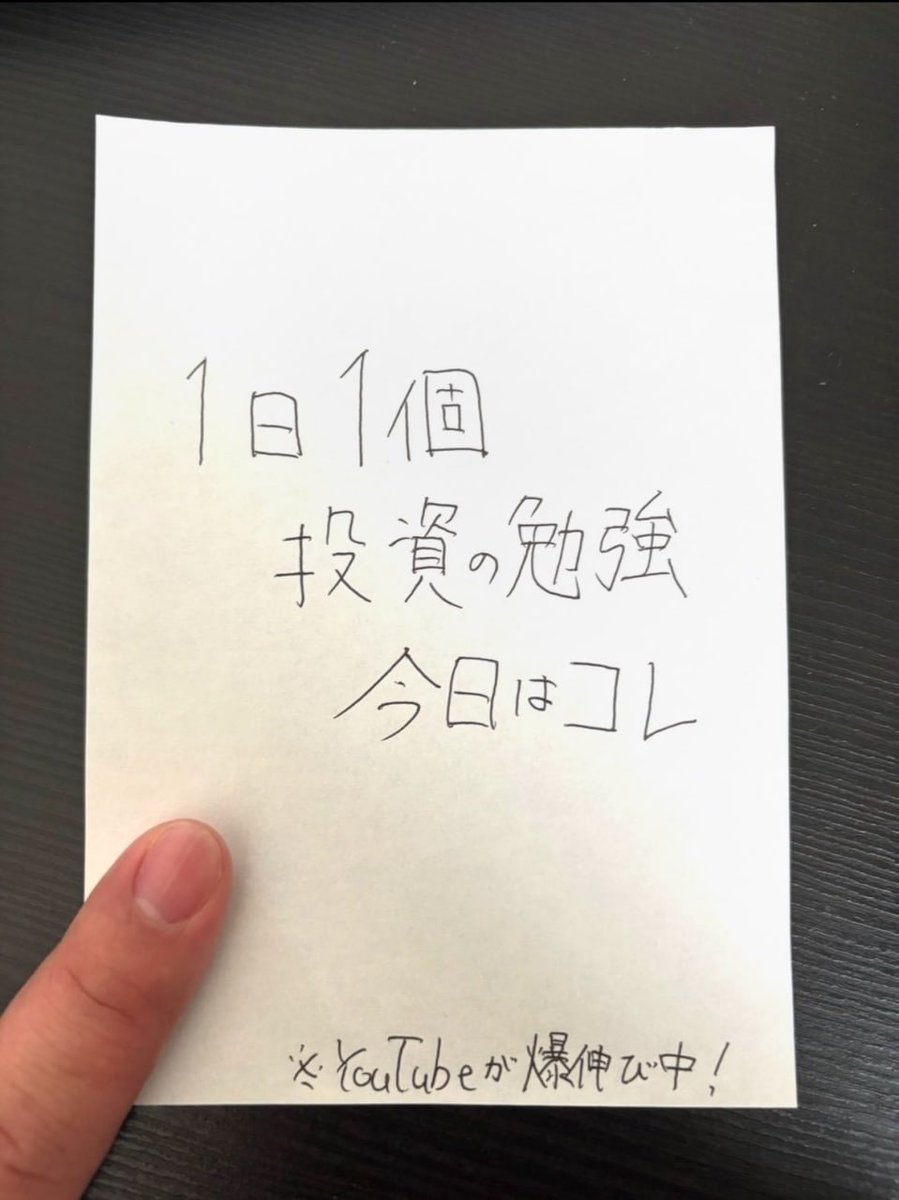 1日1個
投資の勉強
今日はコレ
※YouTubeが爆伸び中!